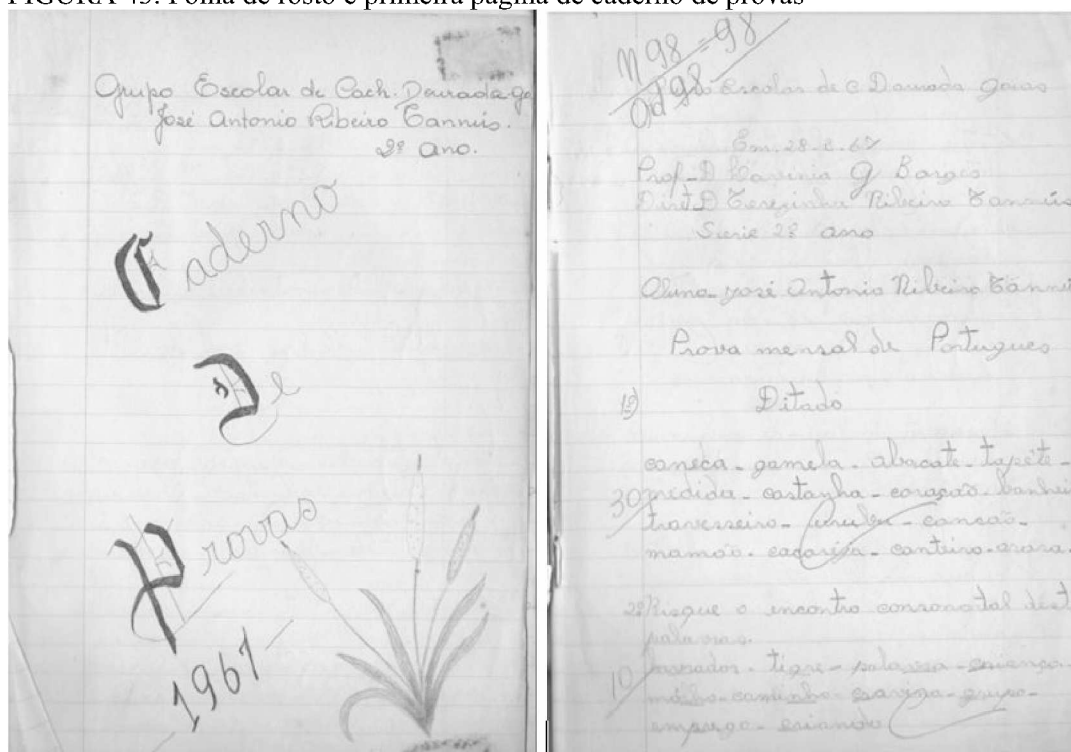 FIGURA 45: Folha de rosto e primeira página de caderno de provas
Grupo Escolar de Cach. Dourada-Go
José Antonio Ribeiro Tannús.
2º ano.
Caderno
De
Provas
1967
N 98 = 98
Od 98
Escolar de C Dourada Goias
Em. 28-8-67
Prof-D Lavinia G Borges
Diret. D Terezinha Ribeiro Tannús
Serie 2º ano
Aluno-José Antonio Ribeiro Tannú
Prova mensal de Portugues
1º) Ditado
caneca - gamela - abacate - tapête -
30 medida - castanha - coração - banhei
travesseiro - urubu - canção -
mamão - - canteiro - arara.
2º Risque o encontro consonatal dest
palavras.
10 - tigre - palavra - criança
- caminho - - grupo -
emprego - criando